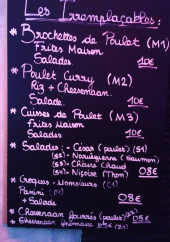 Les Irremplaçables:
* Brochettes de Poulet (M1)
Frites Maison
Salades. 10€
* Poulet Curry (M2)
Riz + Cheesenaan.
Salade. 10€
* Cuisses de Poulet (M3)
Frites Maison
Salades 10€
* Salades: - César (poulet) (S1)
(S2) - Norvégienne (Saumon)
(S3) - Chèvre Chaud
(S4) - Niçoise (Thon) 08€
* Croques-Monsieurs (C1)
Panini (P1)
+ Salade 08€
* Cheesenaan fourrés (poulet) 08€
* Cheesenaan